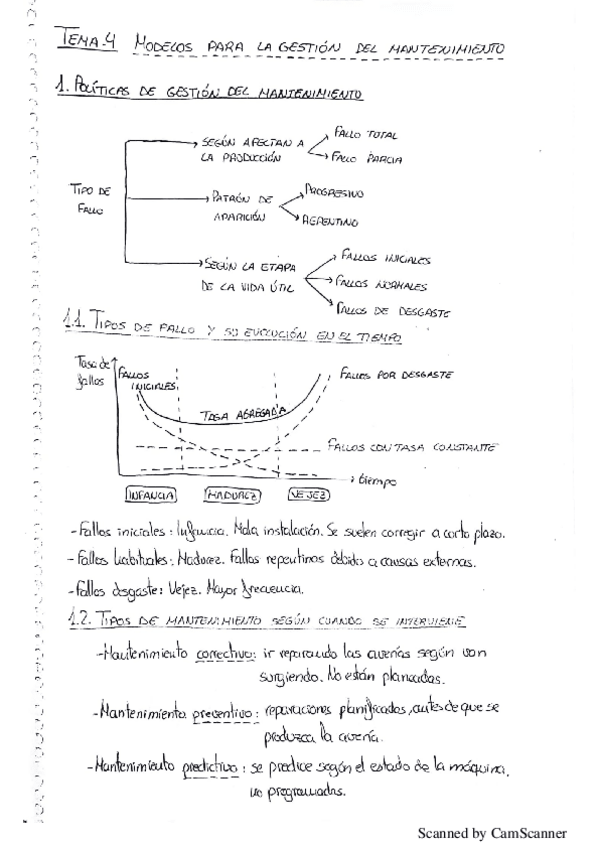 TEMA.4 MODELOS PARA LA GESTIÓN DEL MANTENIMIENTO
1. POLÍTICAS DE GESTIÓN DEL MANTENIMIENTO
TIPO DE
FALLO
SEGÚN AFECTAN A
LA PRODUCCIÓN
FALLO TOTAL
FALLO PARCIA
PATRÓN DE
APARICIÓN
PROGRESIVO
REPENTINO
SEGÚN LA ETAPA
DE LA VIDA ÚTIL
FALLOS INICIALES
FALLOS NORMALES
FALLOS DE DESGASTE
1.1. TIPOS DE FALLO Y SU EVOLUCIÓN EN EL TIEMPO
Tasa de
fallos
FALLOS
INICIALES
FALLOS POR DESGASTE
TASA AGREGADA
FALLOS CON TASA CONSTANTE
tiempo
INFANCIA MADUREZ VEJEZ
-Fallos iniciales: Infancia. Mala instalación. Se suelen corregir a corto plazo.
-Fallos habituales: Madurez. Fallos repentinos debido a causas externas.
-Fallos desgaste: Vejez. Mayor frecuencia.
1.2. TIPOS DE MANTENIMIENTO SEGÚN CUANDO SE INTERVIENE
-Mantenimiento correctivo: ir reparando las averías según van
surgiendo. No están planeadas.
-Mantenimiento preventivo: reparaciones planificadas, antes de que se
produzca la avería.
-Mantenimiento predictivo: se predice según el estado de la máquina,
no programadas.
Scanned by CamScanner